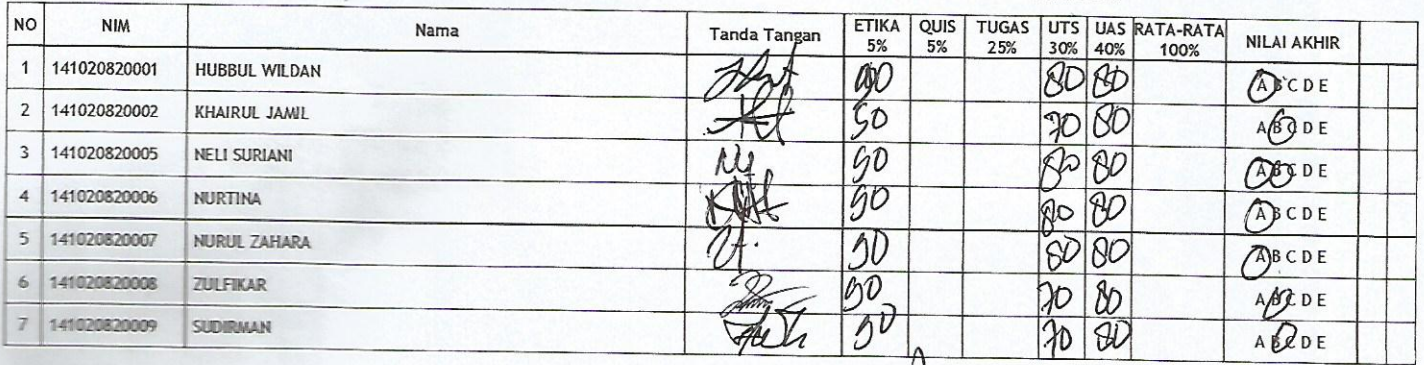 NO NIM Nama Tanda Tangan ETIKA 5% QUIS 5% TUGAS 25% UTS 30% UAS 40% RATA-RATA 100% NILAI AKHIR
1 141020820001 HUBBUL WILDAN 80 80 A B C D E
2 141020820002 KHAIRUL JAMIL 70 80 A B C D E
3 141020820005 NELI SURIANI 90 80 80 A B C D E
4 141020820006 NURTINA 90 80 80 A B C D E
5 141020820007 NURUL ZAHARA 90 80 80 A B C D E
6 141020820008 ZULFIKAR 90 70 80 A B C D E
7 141020820009 SUDIRMAN 90 70 80 A B C D E